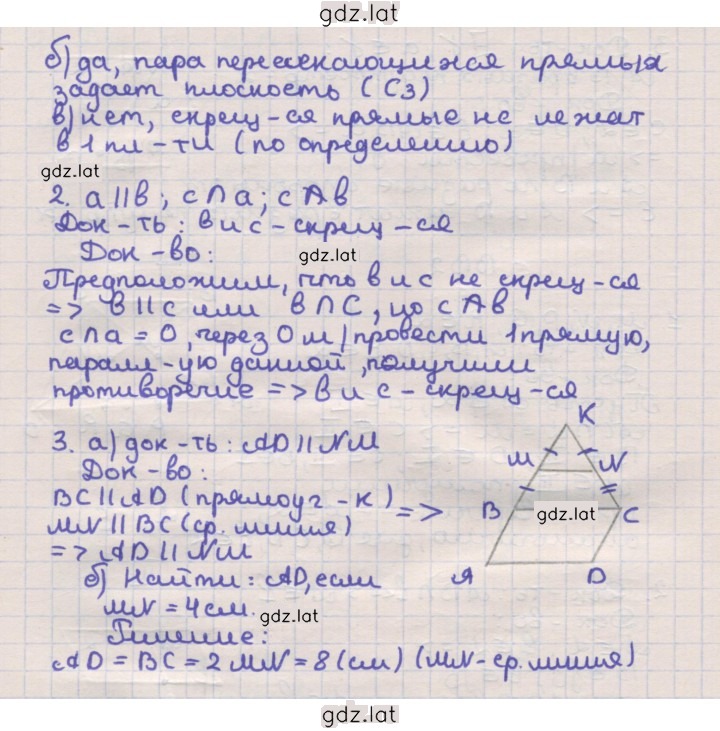 gdz.lat
б) да, пара пересекающихся прямых
задает плоскость (С3)
в) нет, скрещ-ся прямые не лежат
в 1 пл-ти (по определению)
gdz.lat
2. a||в; c∩a; c∦в
Док-ть: в и с - скрещ-ся
Док-во:
gdz.lat
Предположим, что в и с не скрещ-ся
=> в||с или в∩С, но c∦в
c∩a = O, через О м/провести 1 прямую,
паралл-ую данной, получили
противоречие => в и с - скрещ-ся
3. а) док-ть: AD||NM
Док-во:
BC||AD (прямоуг-к)
MN||BC (ср. линия) =>
=> AD||NM
б) Найти: AD, если
MN = 4 см.
gdz.lat
Решение:
AD = BC = 2MN = 8 (см) (MN - ср. линия)
K
M N
B C
gdz.lat
A D
gdz.lat